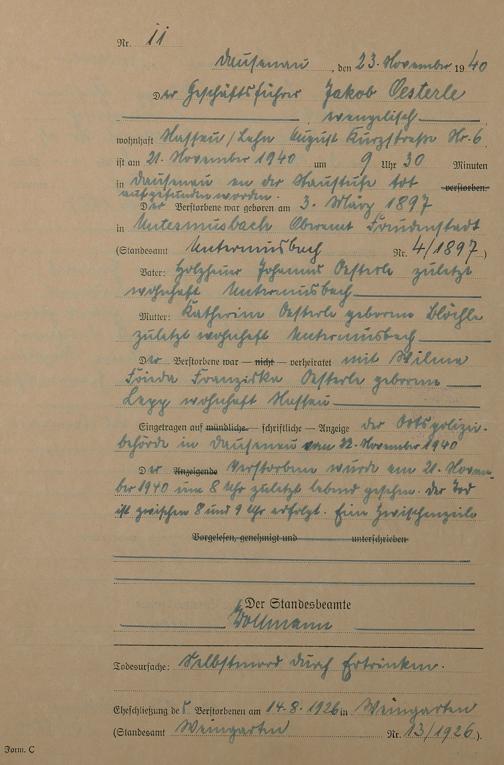 Nr. 11
Dausenau, den 23. November 1940
Der Geschäftsführer Jakob Oesterle
evangelisch
wohnhaft Nassau/Lahn August Kurzstraße Nr. 6
ist am 21. November 1940 um 9 Uhr 30 Minuten
in Dausenau an der Staustufe tot verstorben.
aufgefunden worden.
Der Verstorbene war geboren am 3. März 1897
in Untermusbach Oberamt Freudenstadt
(Standesamt Untermusbach Nr. 4/1897.)
Vater: Holzhauer Johannes Oesterle zuletzt
wohnhaft Untermusbach
Mutter: Katharine Oesterle geborene
zuletzt wohnhaft Untermusbach
Der Verstorbene war — nicht — verheiratet mit Wilma
Frieda Franziska Oesterle geborene
Lepp wohnhaft Nassau
Eingetragen auf mündliche — schriftliche — Anzeige der Ortspolizei-
behörde in Dausenau vom 22. November 1940
Der Anzeigende Verstorbene wurde am 21. Novem-
ber 1940 um 8 Uhr zuletzt lebend gesehen. Der Tod
ist zwischen 8 und 9 Uhr erfolgt. Eine Zwischenzeile
Vorgelesen, genehmigt und unterschrieben
Der Standesbeamte
Wollmann
Todesursache: Selbstmord durch Ertrinken.
Eheschließung des Verstorbenen am 14.8.1926 in Weingarten
(Standesamt Weingarten Nr. 13/1926.)
Form. C